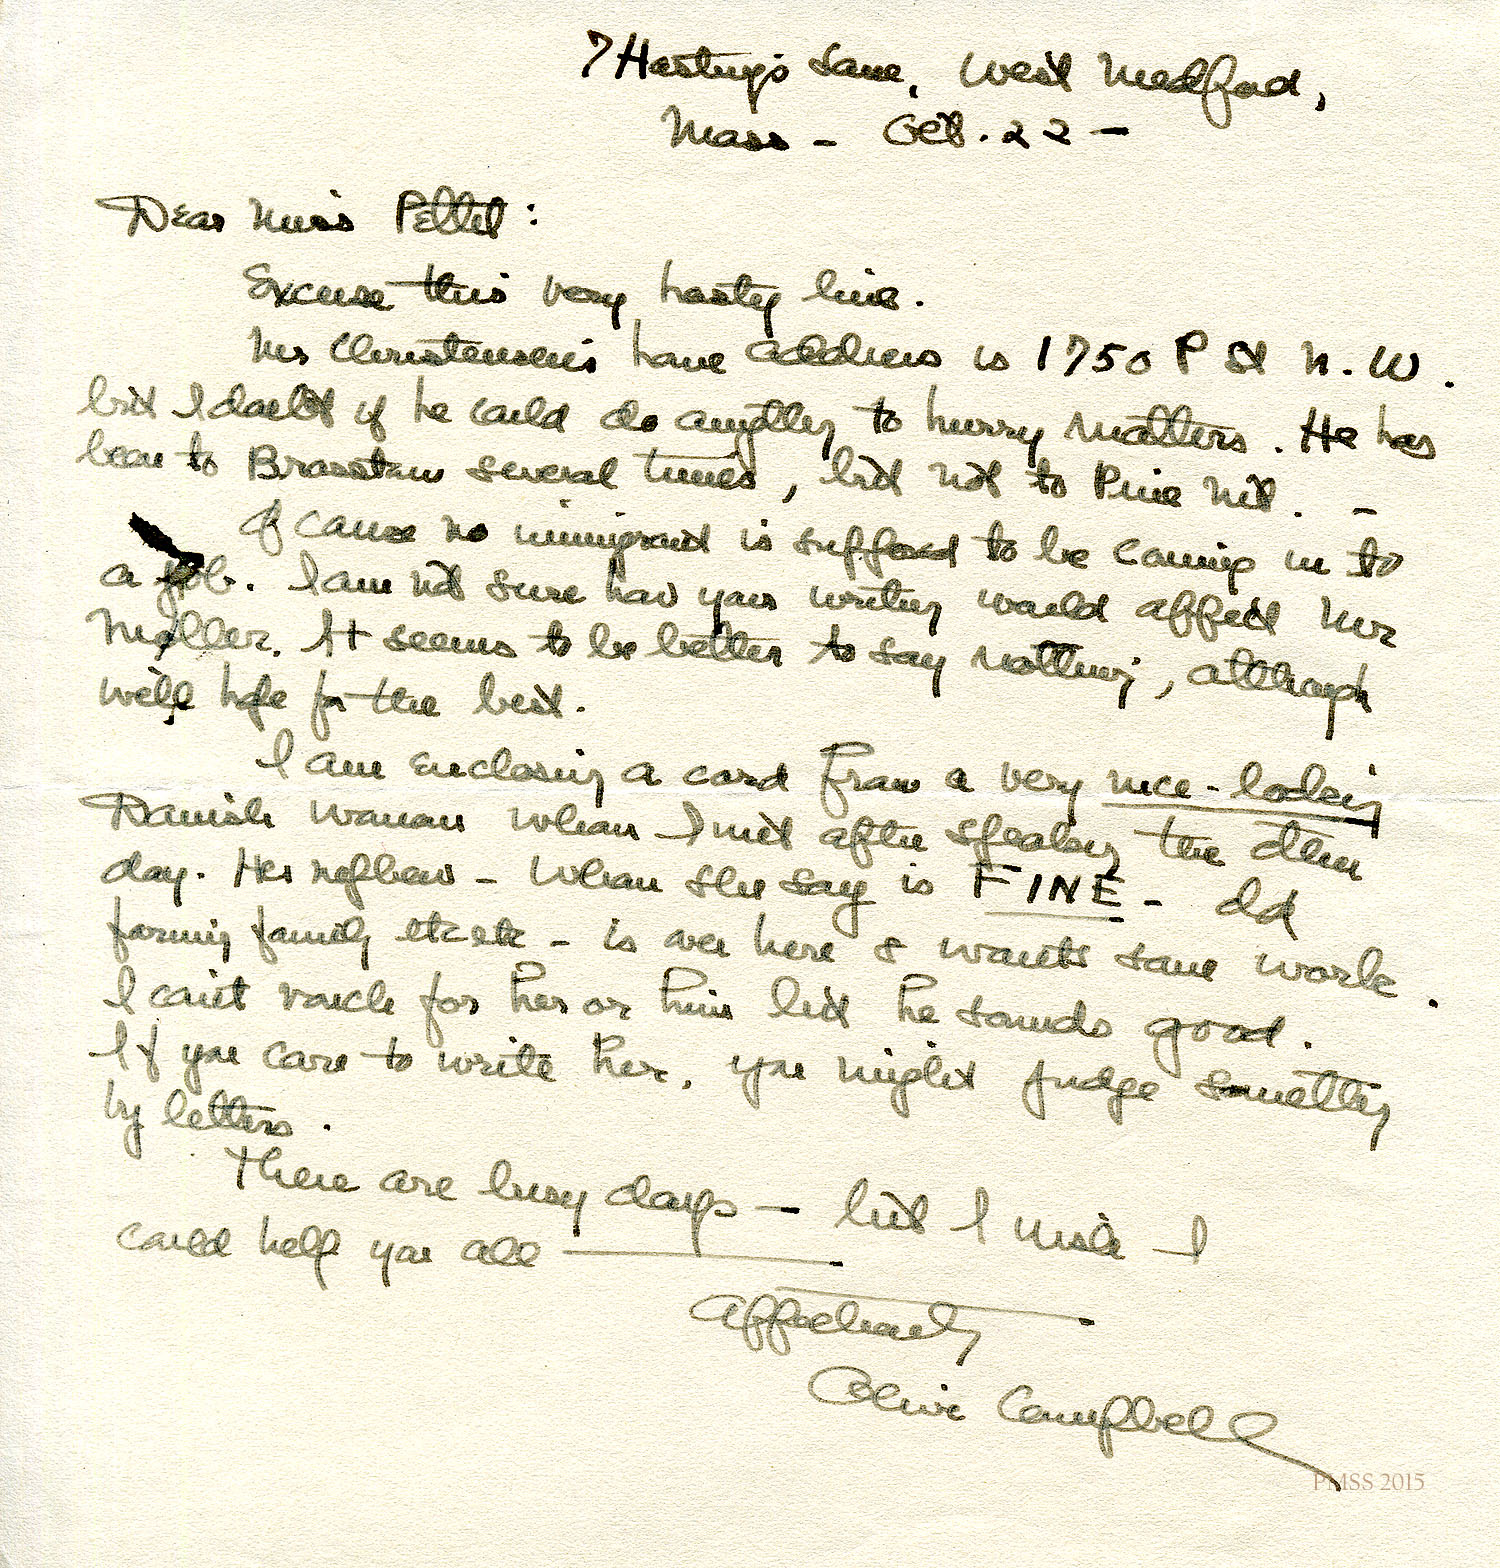 7 Hastings Lane, West Medford,
Mass – Oct. 22 –
Dear Miss Pettit:
Excuse this very hasty line.
Mr Christensen's home address is 1750 P St N.W.
but I doubt if he could do anything to hurry matters. He has
been to Brasstown several times, but not to Pine Mt. –
Of course no immigrant is supposed to be coming in to
a job. I am not sure how your writing would affect Mr
Moller. It seems to be better to say nothing, although
we'll hope for the best.
I am enclosing a card from a very nice-looking
Danish woman whom I met after speaking the other
day. Her nephew – whom she say is FINE – old
farming family etc etc – is over here & wants some work.
I can't vouch for her or him but he sounds good.
If you care to write her, you might judge something
by letters.
There are busy days – but I wish I
could help you all
Affectionately
Olive Campbell
PMSS 2015